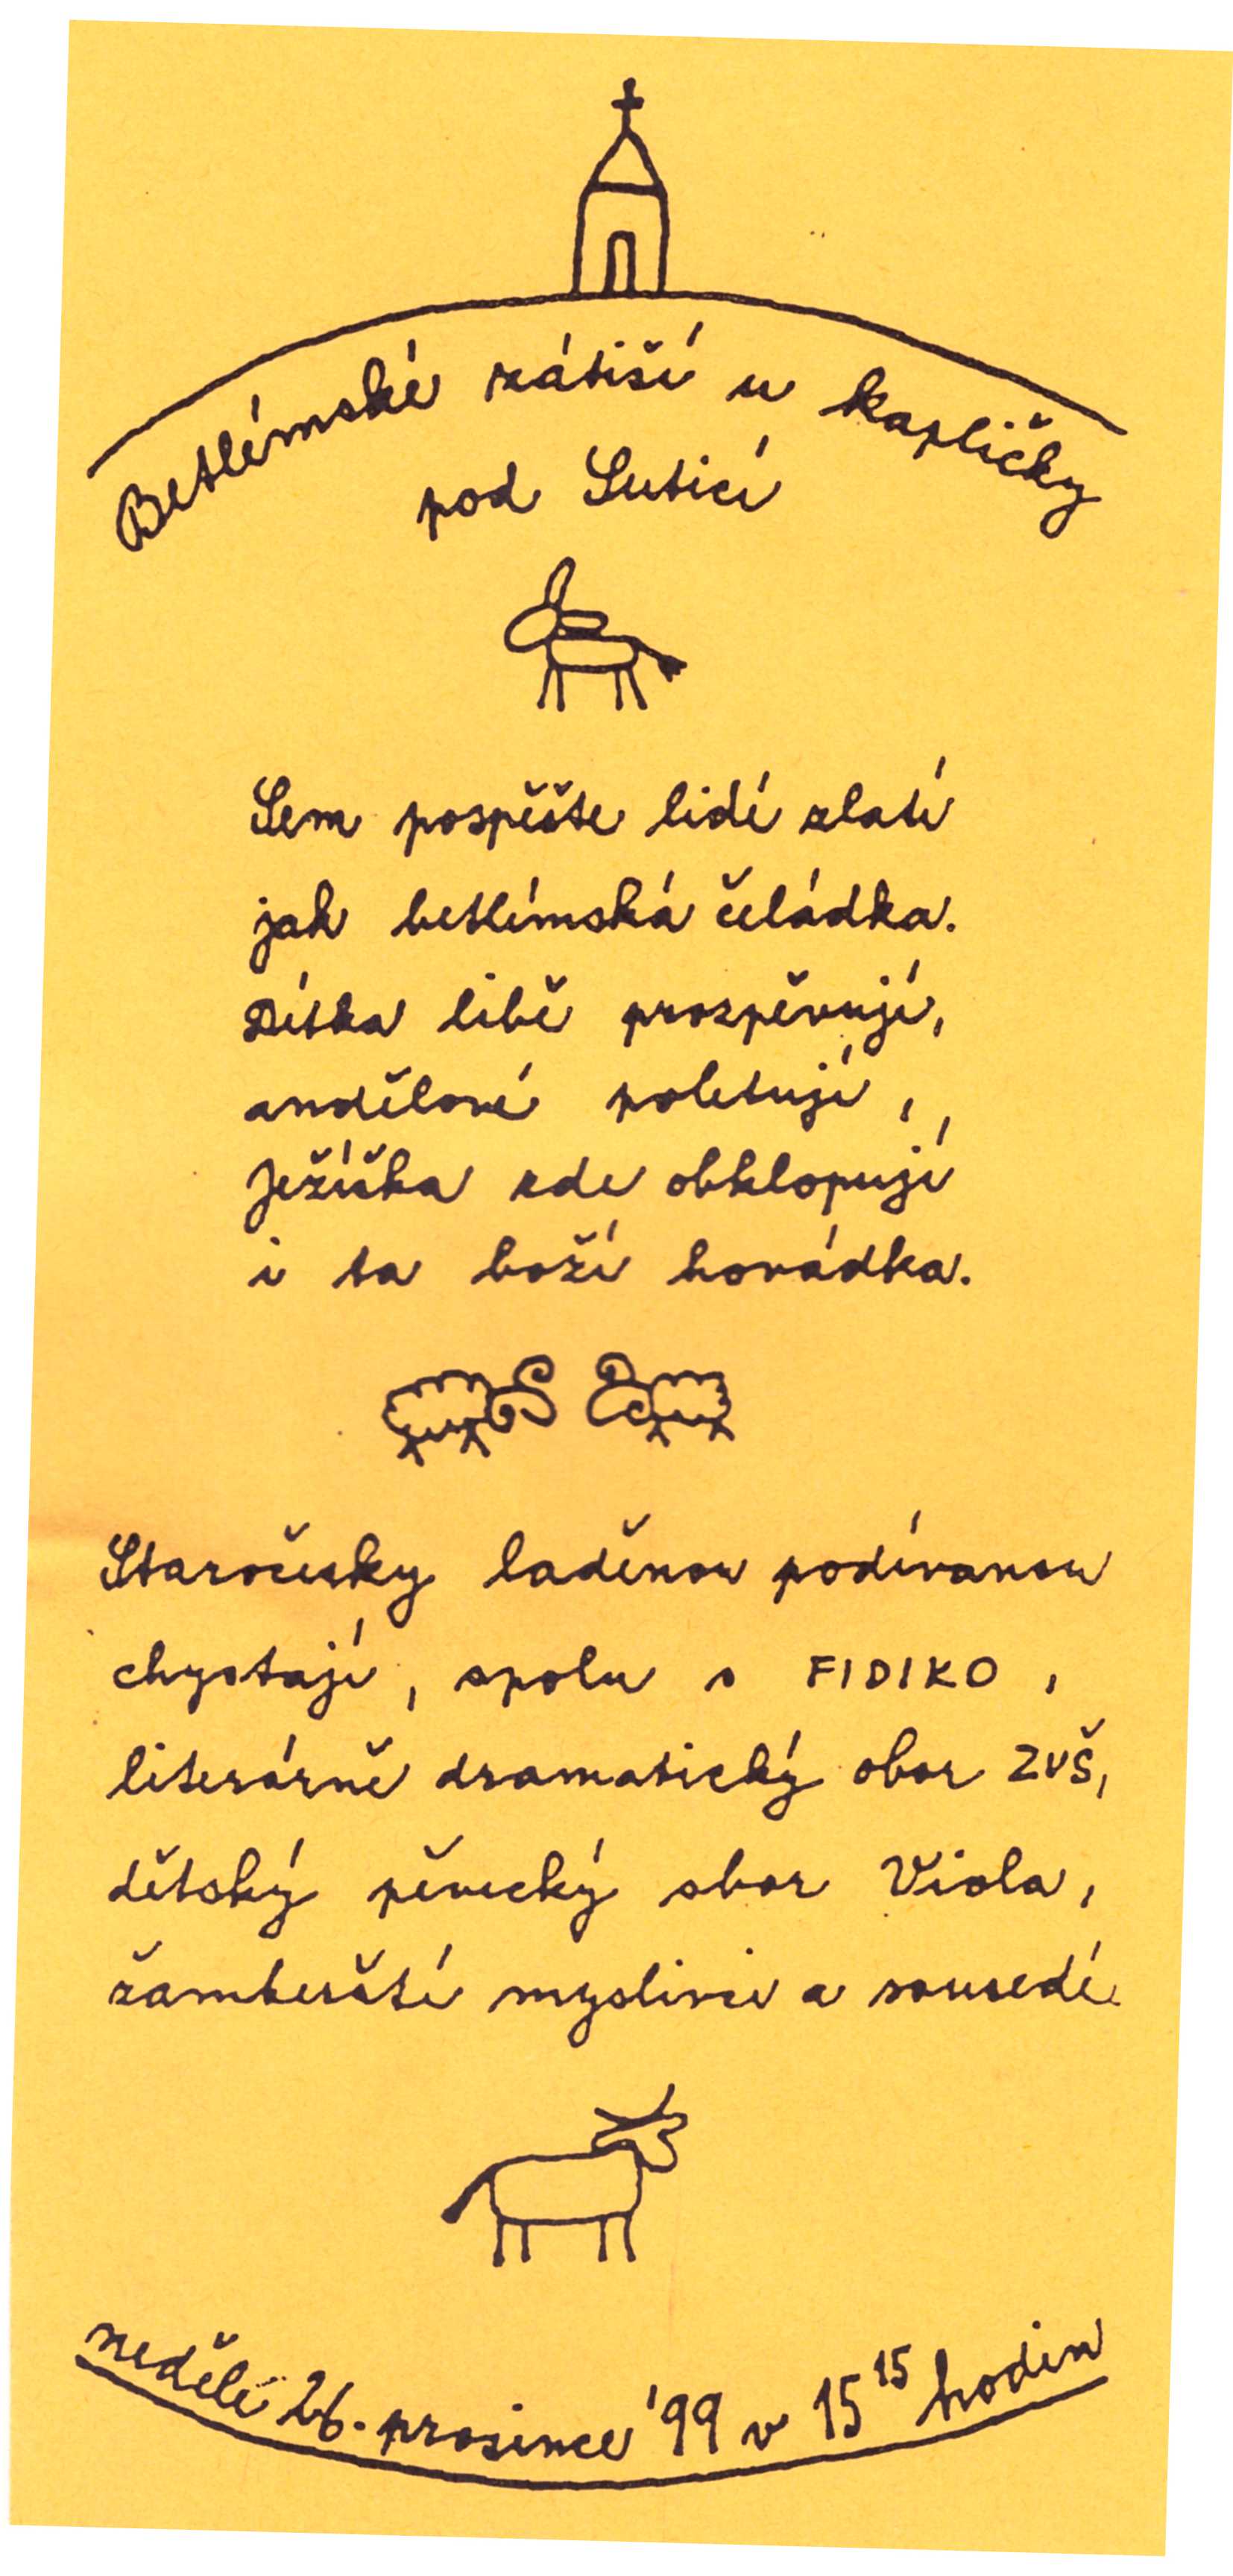 Betlémské zátiší u kapličky
pod Suticí
Sem pospěšte lidé zlatí
jak betlémská čeládka.
Dítka libě prozpěvují,
andělové poletují,
Ježíška zde obklopují
i ta boží hovádka.
Staročesky laděnou podívanou
chystají, spolu s FIDIKO,
literárně dramatický obor ZUŠ,
dětský pěvecký sbor Viola,
žamberští myslivci a sousedé.
neděle 26. prosince '99 v 15 15 hodin